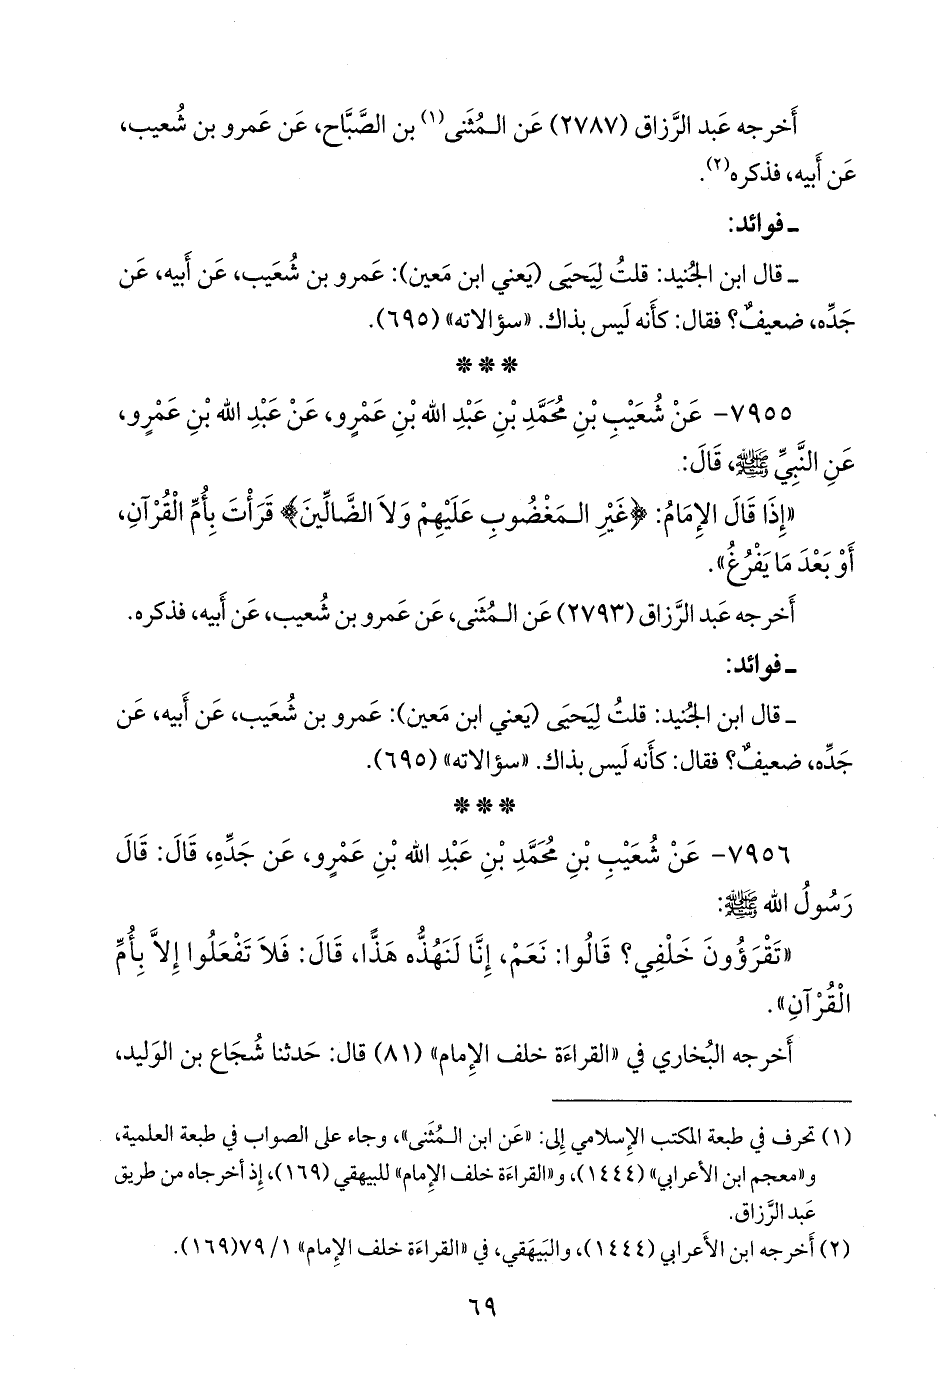 أَخرجه عَبد الرَّزاق (٢٧٨٧) عَن الـمُثَنى(١) بن الصَّبَّاح، عَن عَمرو بن شُعيب،
عَن أَبيه، فذكره(٢).
ـ فوائد:
ـ قال ابن الجُنيد: قلتُ لِيَحيَى (يَعني ابن مَعين): عَمرو بن شُعَيب، عَن أَبيه، عَن
جَدِّه، ضعيفٌ؟ فقال: كأَنه لَيس بذاك. «سؤالاته» (٦٩٥).
* * *
٧٩٥٥- عَنْ شُعَيْبِ بْنِ مُحَمَّدِ بْنِ عَبْدِ الله بْنِ عَمْرٍو، عَنْ عَبْدِ الله بْنِ عَمْرٍو،
عَنِ النَّبِيِّ ﷺ، قَالَ:
«إِذَا قَالَ الإِمَامُ: ﴿غَيْرِ الـمَغْضُوبِ عَلَيْهِمْ وَلاَ الضَّالِّينَ﴾ قَرَأْتَ بِأُمِّ الْقُرْآنِ،
أَوْ بَعْدَ مَا يَفْرُغُ».
أَخرجه عَبد الرَّزاق (٢٧٩٣) عَن الـمُثَنى، عَن عَمرو بن شُعيب، عَن أَبيه، فذكره.
ـ فوائد:
ـ قال ابن الجُنيد: قلتُ لِيَحيَى (يَعني ابن مَعين): عَمرو بن شُعَيب، عَن أَبيه، عَن
جَدِّه، ضعيفٌ؟ فقال: كأَنه لَيس بذاك. «سؤالاته» (٦٩٥).
* * *
٧٩٥٦- عَنْ شُعَيْبِ بْنِ مُحَمَّدِ بْنِ عَبْدِ الله بْنِ عَمْرٍو، عَن جَدِّهِ، قَالَ: قَالَ
رَسُولُ الله ﷺ:
«تَقْرَؤُونَ خَلْفِي؟ قَالُوا: نَعَمْ، إِنَّا لَنَهُذُّه هَذًّا، قَالَ: فَلاَ تَفْعَلُوا إِلاَّ بِأُمِّ
الْقُرْآنِ».
أَخرجه البُخاري في «القراءَة خلف الإِمام» (٨١) قال: حَدثنا شُجَاع بن الوَليد،
(١) تحرف في طبعة المكتب الإِسلامي إِلى: «عَن ابن الـمُثَنى»، وجاء على الصواب في طبعة العلمية،
و«معجم ابن الأَعرابي» (١٤٤٤)، و«القراءَة خلف الإِمام» للبيهقي (١٦٩)، إِذ أخرجاه من طريق
عَبد الرَّزاق.
(٢) أَخرجه ابن الأَعرابي (١٤٤٤)، والبَيهَقي، في «القراءَة خلف الإِمام» ١/ ٧٩(١٦٩).
٦٩